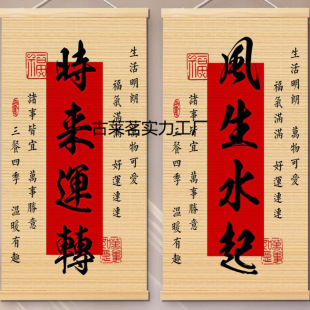 生活明朗 萬物可愛
福氣滿滿 好運連連
時来運轉
諸事皆宜 萬事勝意
三餐四季 溫暖有趣
生活明朗 萬物可愛
福氣滿滿 好運連連
風生水起
諸事皆宜 萬事勝意
三餐四季 溫暖有趣
古莱茗实力工厂